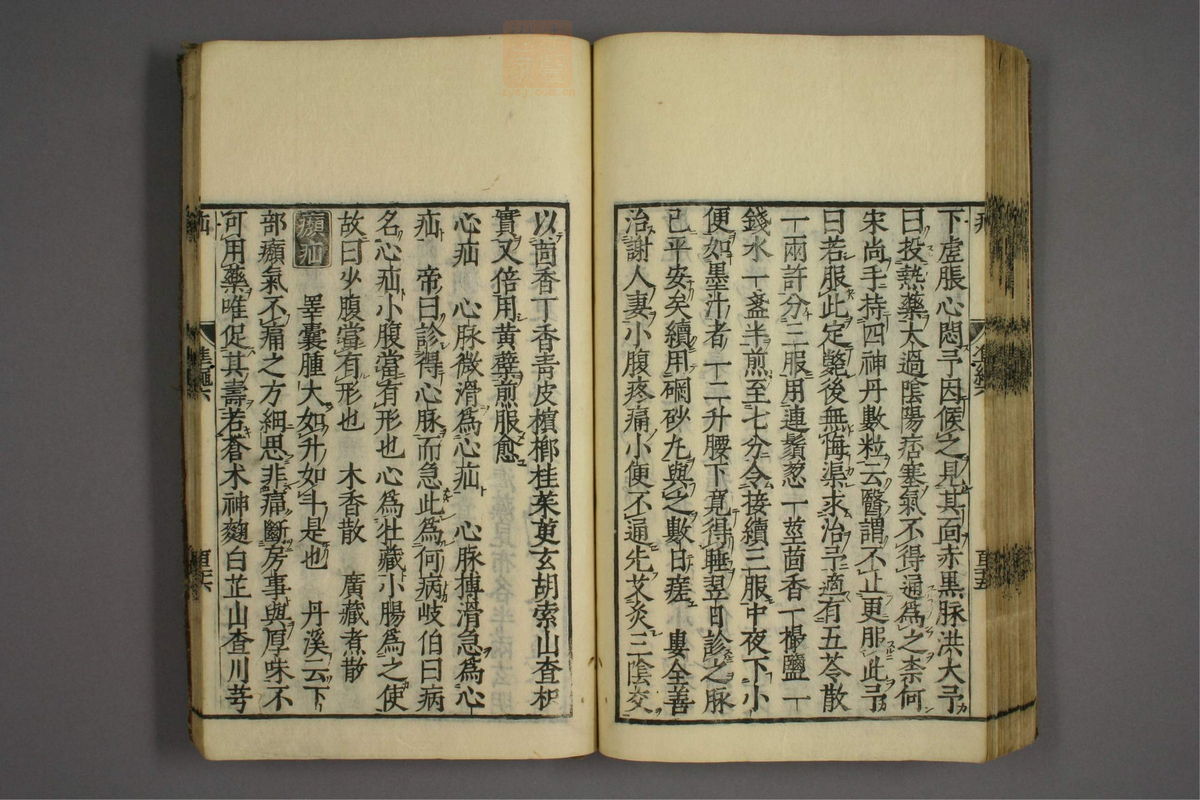 下虚脹心悶予因候之見其面赤黒脉洪大予
曰投熱藥太過陰陽痞塞氣不得通爲之柰何
宋尚手持四神丹數粒云醫謂不止更服此予
曰若服此定斃後無悔渠求治予適有五苓散
一兩許分三服用連鬚葱一莖茴香一撮鹽一
錢水一盞半煎至七分令接續三服中夜下小
便如墨汁者一二升腰下寛得睡翌日診之脉
已平安矣續用硇砂丸與之數日瘥　婁全善
治謝人妻小腹疼痛小便不通先艾灸三陰交
以茴香丁香青皮檳榔桂茱萸玄胡索山查枳
實又倍用黄蘗煎服愈
心疝　心脉微滑爲心疝　心脉搏滑急爲心
疝　帝曰診得心脉而急此爲何病岐伯曰病
名心疝小腹當有形也心爲牡藏小腸爲之使
故曰少腹當有形也　木香散　廣茂煮散
癩疝　睪囊腫大如升如斗是也　丹溪云下
部癩氣不痛之方細思非痛斷房事與厚味不
可用藥唯促其壽若蒼术神麹白芷山查川芎
疝